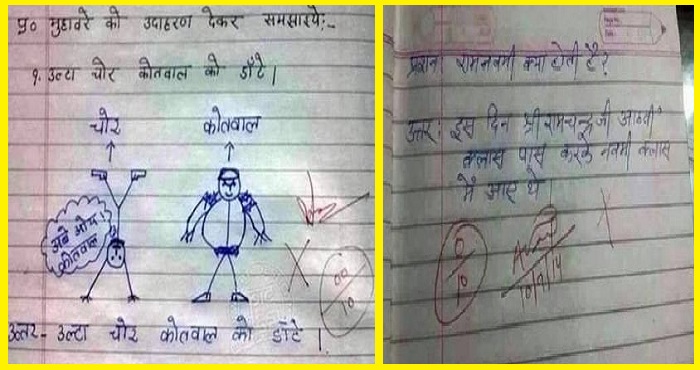 प्र० मुहावरे को उदाहरण देकर समझाइये:-
१. उल्टा चोर कोतवाल को डाँटे।
चोर कोतवाल
अबे ओए
कोतवाल
00/10
उत्तर- उल्टा चोर कोतवाल को डाँटे।
प्रशन: रामनवमी क्या होती है?
उत्तर: इस दिन श्री रामचन्द्र जी आठवी
क्लास पास करके नवमी क्लास
में आए थे।
0/10
10/9/14